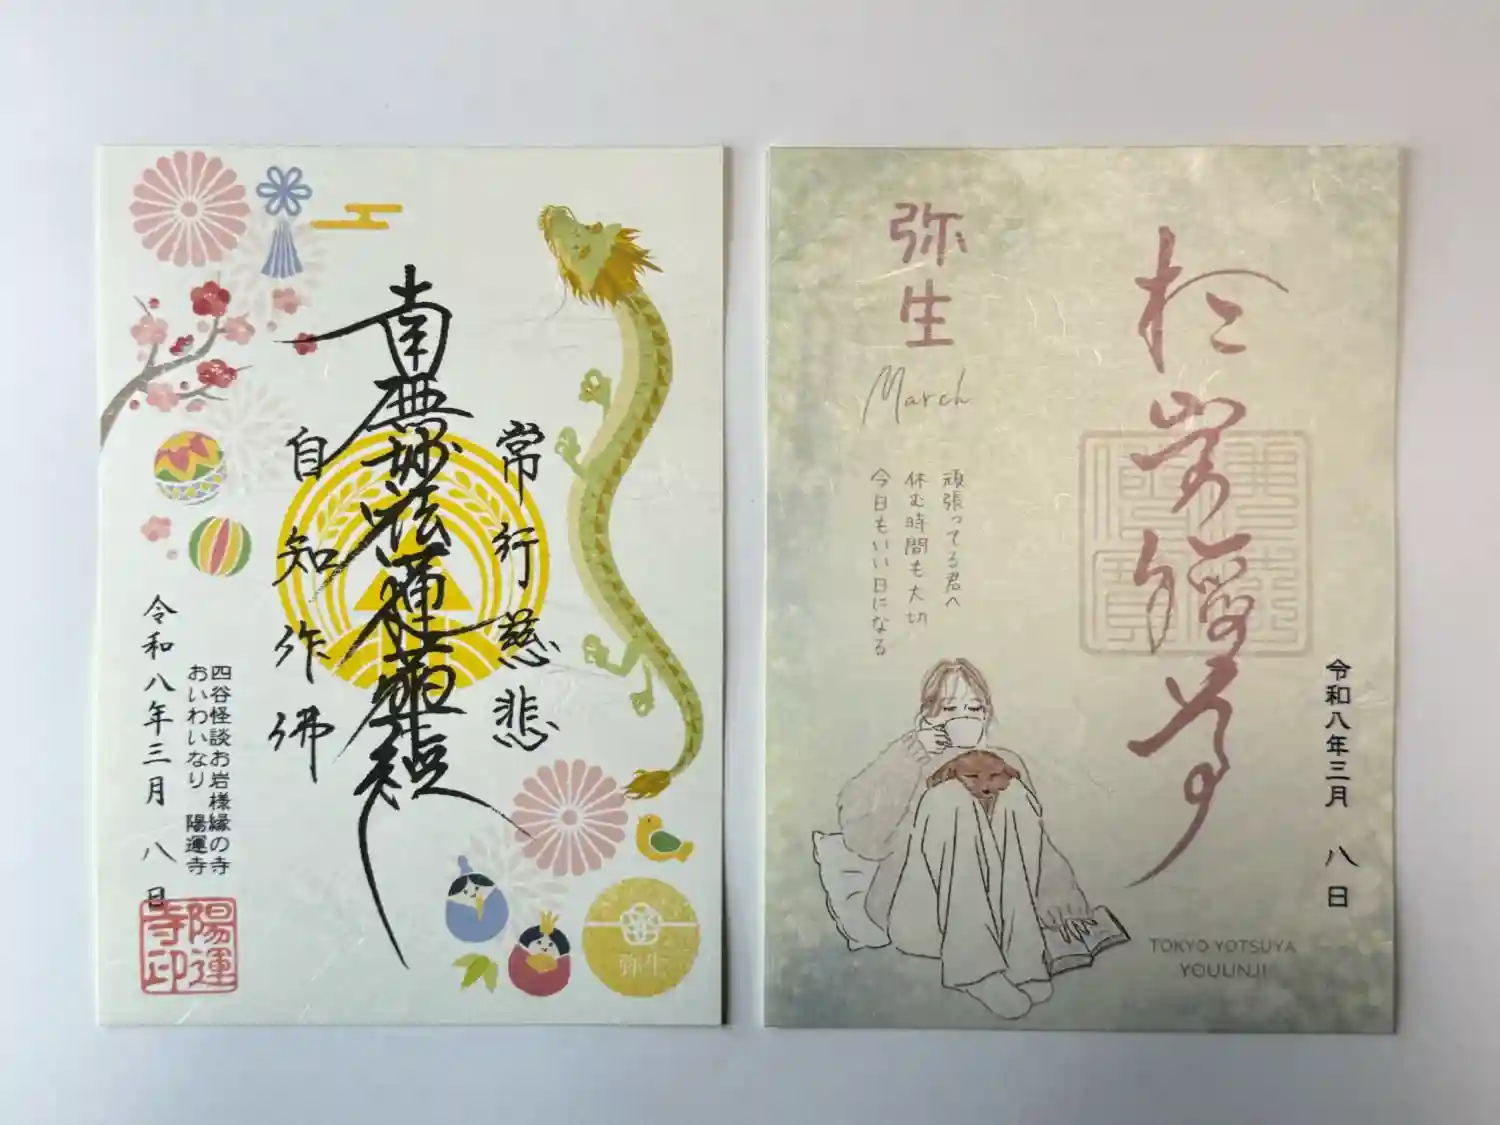 常行慈悲
南無妙法蓮華経
自知作佛
四谷怪談お岩様縁の寺
おいわいなり 陽運寺
令和八年三月八日
陽運寺印
弥生
弥生
March
頑張ってる君へ
休む時間も大切
今日もいい日になる
令和八年三月 八日
TOKYO YOTSUYA
YOUUNJI